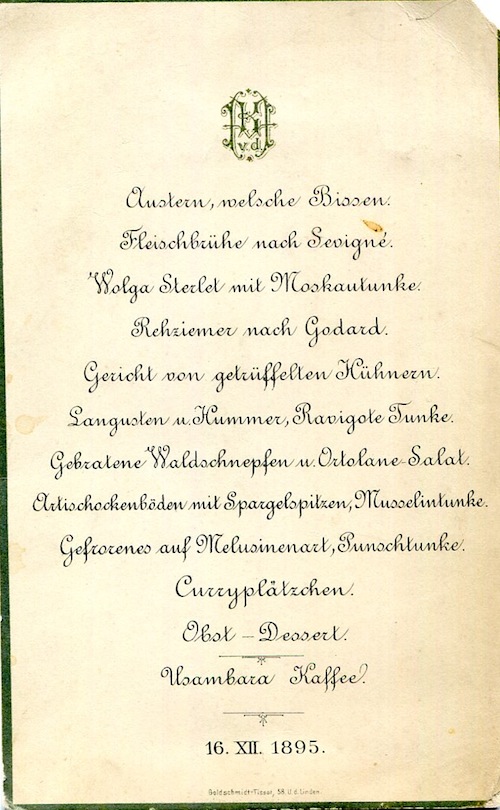 v.d.
Austern, welsche Bissen.
Fleischbrühe nach Sevigné.
Wolga Sterlet mit Moskautunke.
Rehziemer nach Godard.
Gericht von getrüffelten Hühnern.
Langusten u. Hummer, Ravigote Tunke.
Gebratene Waldschnepfen u. Ortolane-Salat.
Artischockenböden mit Spargelspitzen, Musselintunke.
Gefrorenes auf Melusinenart, Punschtunke.
Curryplätzchen.
Obst – Dessert.
Usambara Kaffee.
16. XII. 1895.
Goldschmidt-Tissar, 58. U. d. Linden